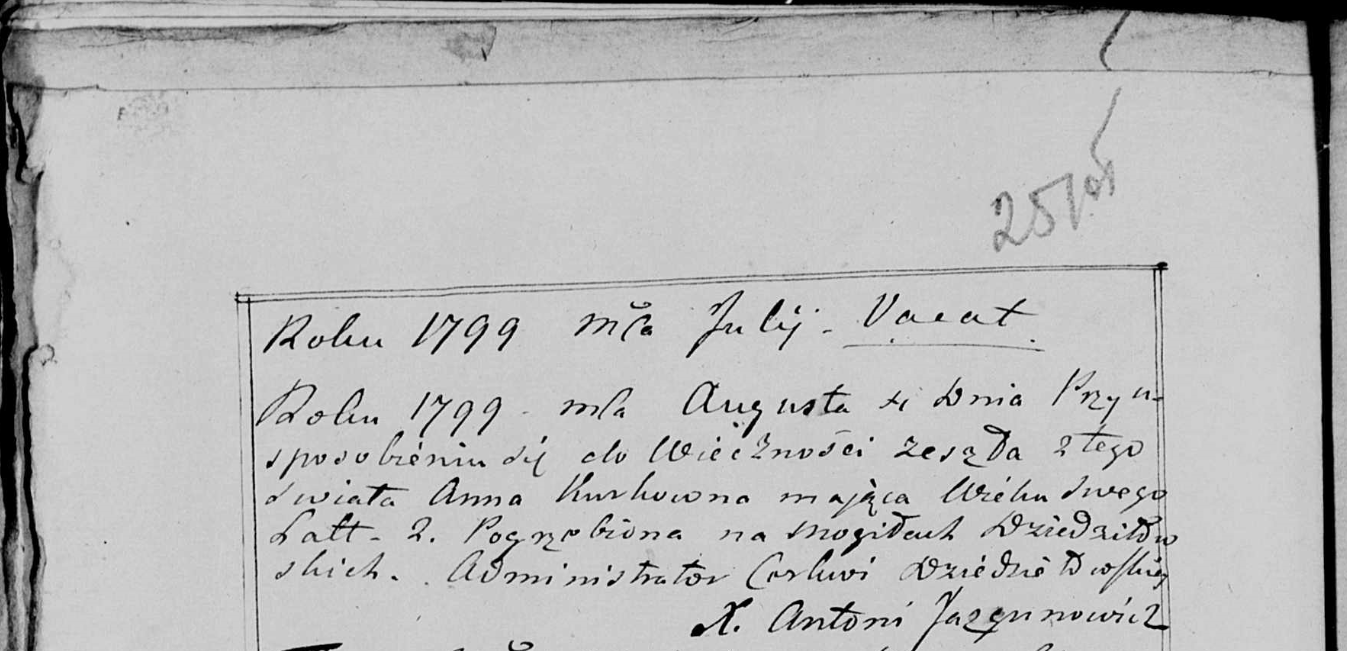 25/об
Roku 1799 mca Julij. Vacat.
Roku 1799 mca Augusta 4 Dnia Przyu-
sposobieniu się do Wiéczności zeszła z tego
świata Anna Kurkowna mająca Wieku swego
Latt 2. Pogrzebiona na mogiłach Dziedziłow
skich. Administrator Cerkwi Dziedziłowskiey
X. Antoni Jazgunowicz